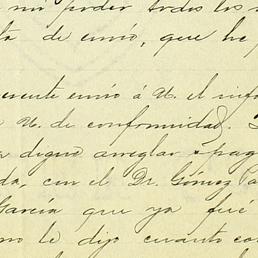 mi poder todos los
de envío, que he
envío á U. el
U. de conformidad).
digne arreglar pag
da, con el Dr. Gómez Pa
García que ya fué
le dijo cuanto con